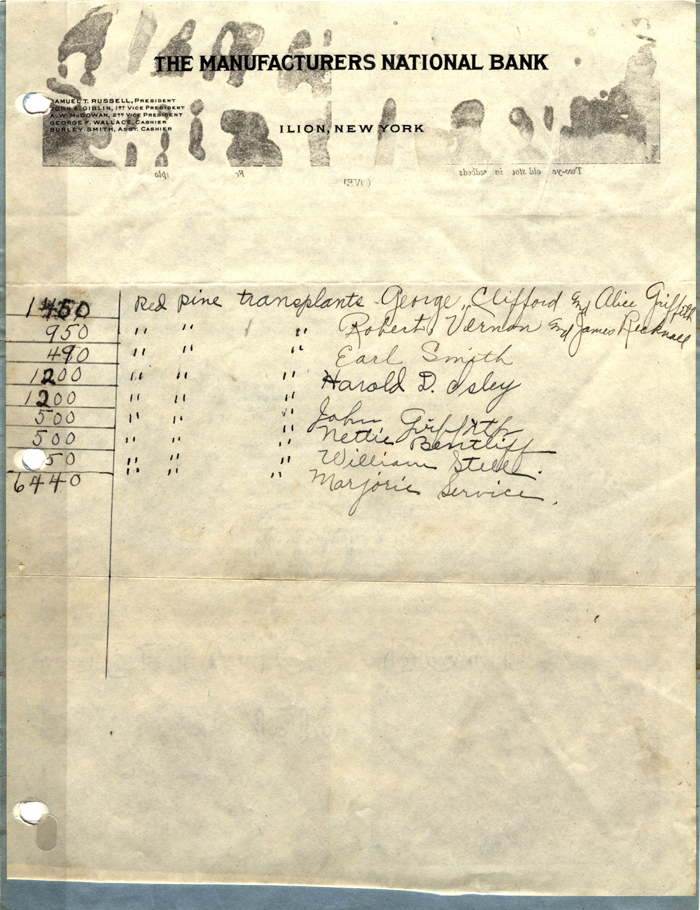 THE MANUFACTURERS NATIONAL BANK
SAMUEL T. RUSSELL, PRESIDENT
JOHN A. GIBLIN, 1ST VICE PRESIDENT
A. W. McGOWAN, 2ND VICE PRESIDENT
GEORGE F. WALLACE, CASHIER
BURLEY SMITH, ASST. CASHIER
ILION, NEW YORK
Two-ye old stoc in seedbeds
1450 Red pine transplants George, Clifford and Alice Griffith
950 " " " Robert, Vernon and James Recknall
490 " " " Earl Smith
1200 " " " Harold D. Isley
1200 " " " John Griffith
500 " " " Nettie Bentliff
500 " " " William Steele.
50 " " " Marjorie Service.
6440